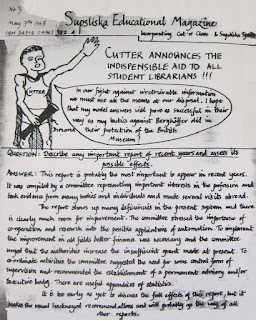 No 3
Supsliska Educational Magazine
May 7th 1963
Incorporating Cut-n-Chase & Supsliska
CUTTER ANNOUNCES THE
INDISPENSIBLE AID TO ALL
STUDENT LIBRARIANS !!!
CUTTER
In our fight against irretrievable information
we must use all the means at our disposal. I hope
that my model answers will prove as successful in their
way as my tactics against Berghöffer did in
the potection of the British
Museum!
QUESTION: Describe any important report of recent years and assess its
possible effects.
ANSWER: This report is probably the most important to appear in recent years.
It was compiled by a committee representing important interests in the profession and
took evidence from many bodies and individuals and made several visits abroad.
The report shows up many deficiencies in the present system and there
is clearly much room for improvement. The committee stressed the importance of
co-operation and research into the possible applications of automation. To implement
the improvement in all fields better finance was necessary and the committee
urged that the authorities increase the insufficient grant made at present. To
co-ordinate activities the committee suggested the need for some central form of
supervision and recommended the establishment of a permanent advisory and/or
executive body. There are useful appendices of statistics.
It is too early as yet to discuss the full effects of this report, but it
makes the usual hackneyed recommendations and will probably go the way of all
other reports.